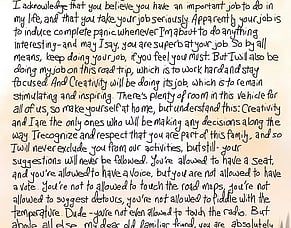 I acknowledge that you believe you have an important job to do in
my life, and that you take your job seriously. Apparently your job is
to induce complete panic whenever I'm about to do anything
interesting - and may I say, you are superb at your job. So by all
means, keep doing your job, if you feel you must. But I will also be
doing my job on this road trip, which is to work hard and stay
focused. And Creativity will be doing its job, which is to remain
stimulating and inspiring. There's plenty of room in this vehicle for
all of us, so make yourself at home, but understand this: Creativity
and I are the only ones who will be making any decisions along the
way. I recognize and respect that you are part of this family, and so
I will never exclude you from our activities, but still - your
suggestions will never be followed. You're allowed to have a seat,
and you're allowed to have a voice, but you are not allowed to have
a vote. You're not to allowed to touch the road maps, you're not
allowed to suggest detours, you're not allowed to fiddle with the
temperature. Dude - you're not even allowed to touch the radio. But
above all else, my dear old familiar friend, you are absolutely